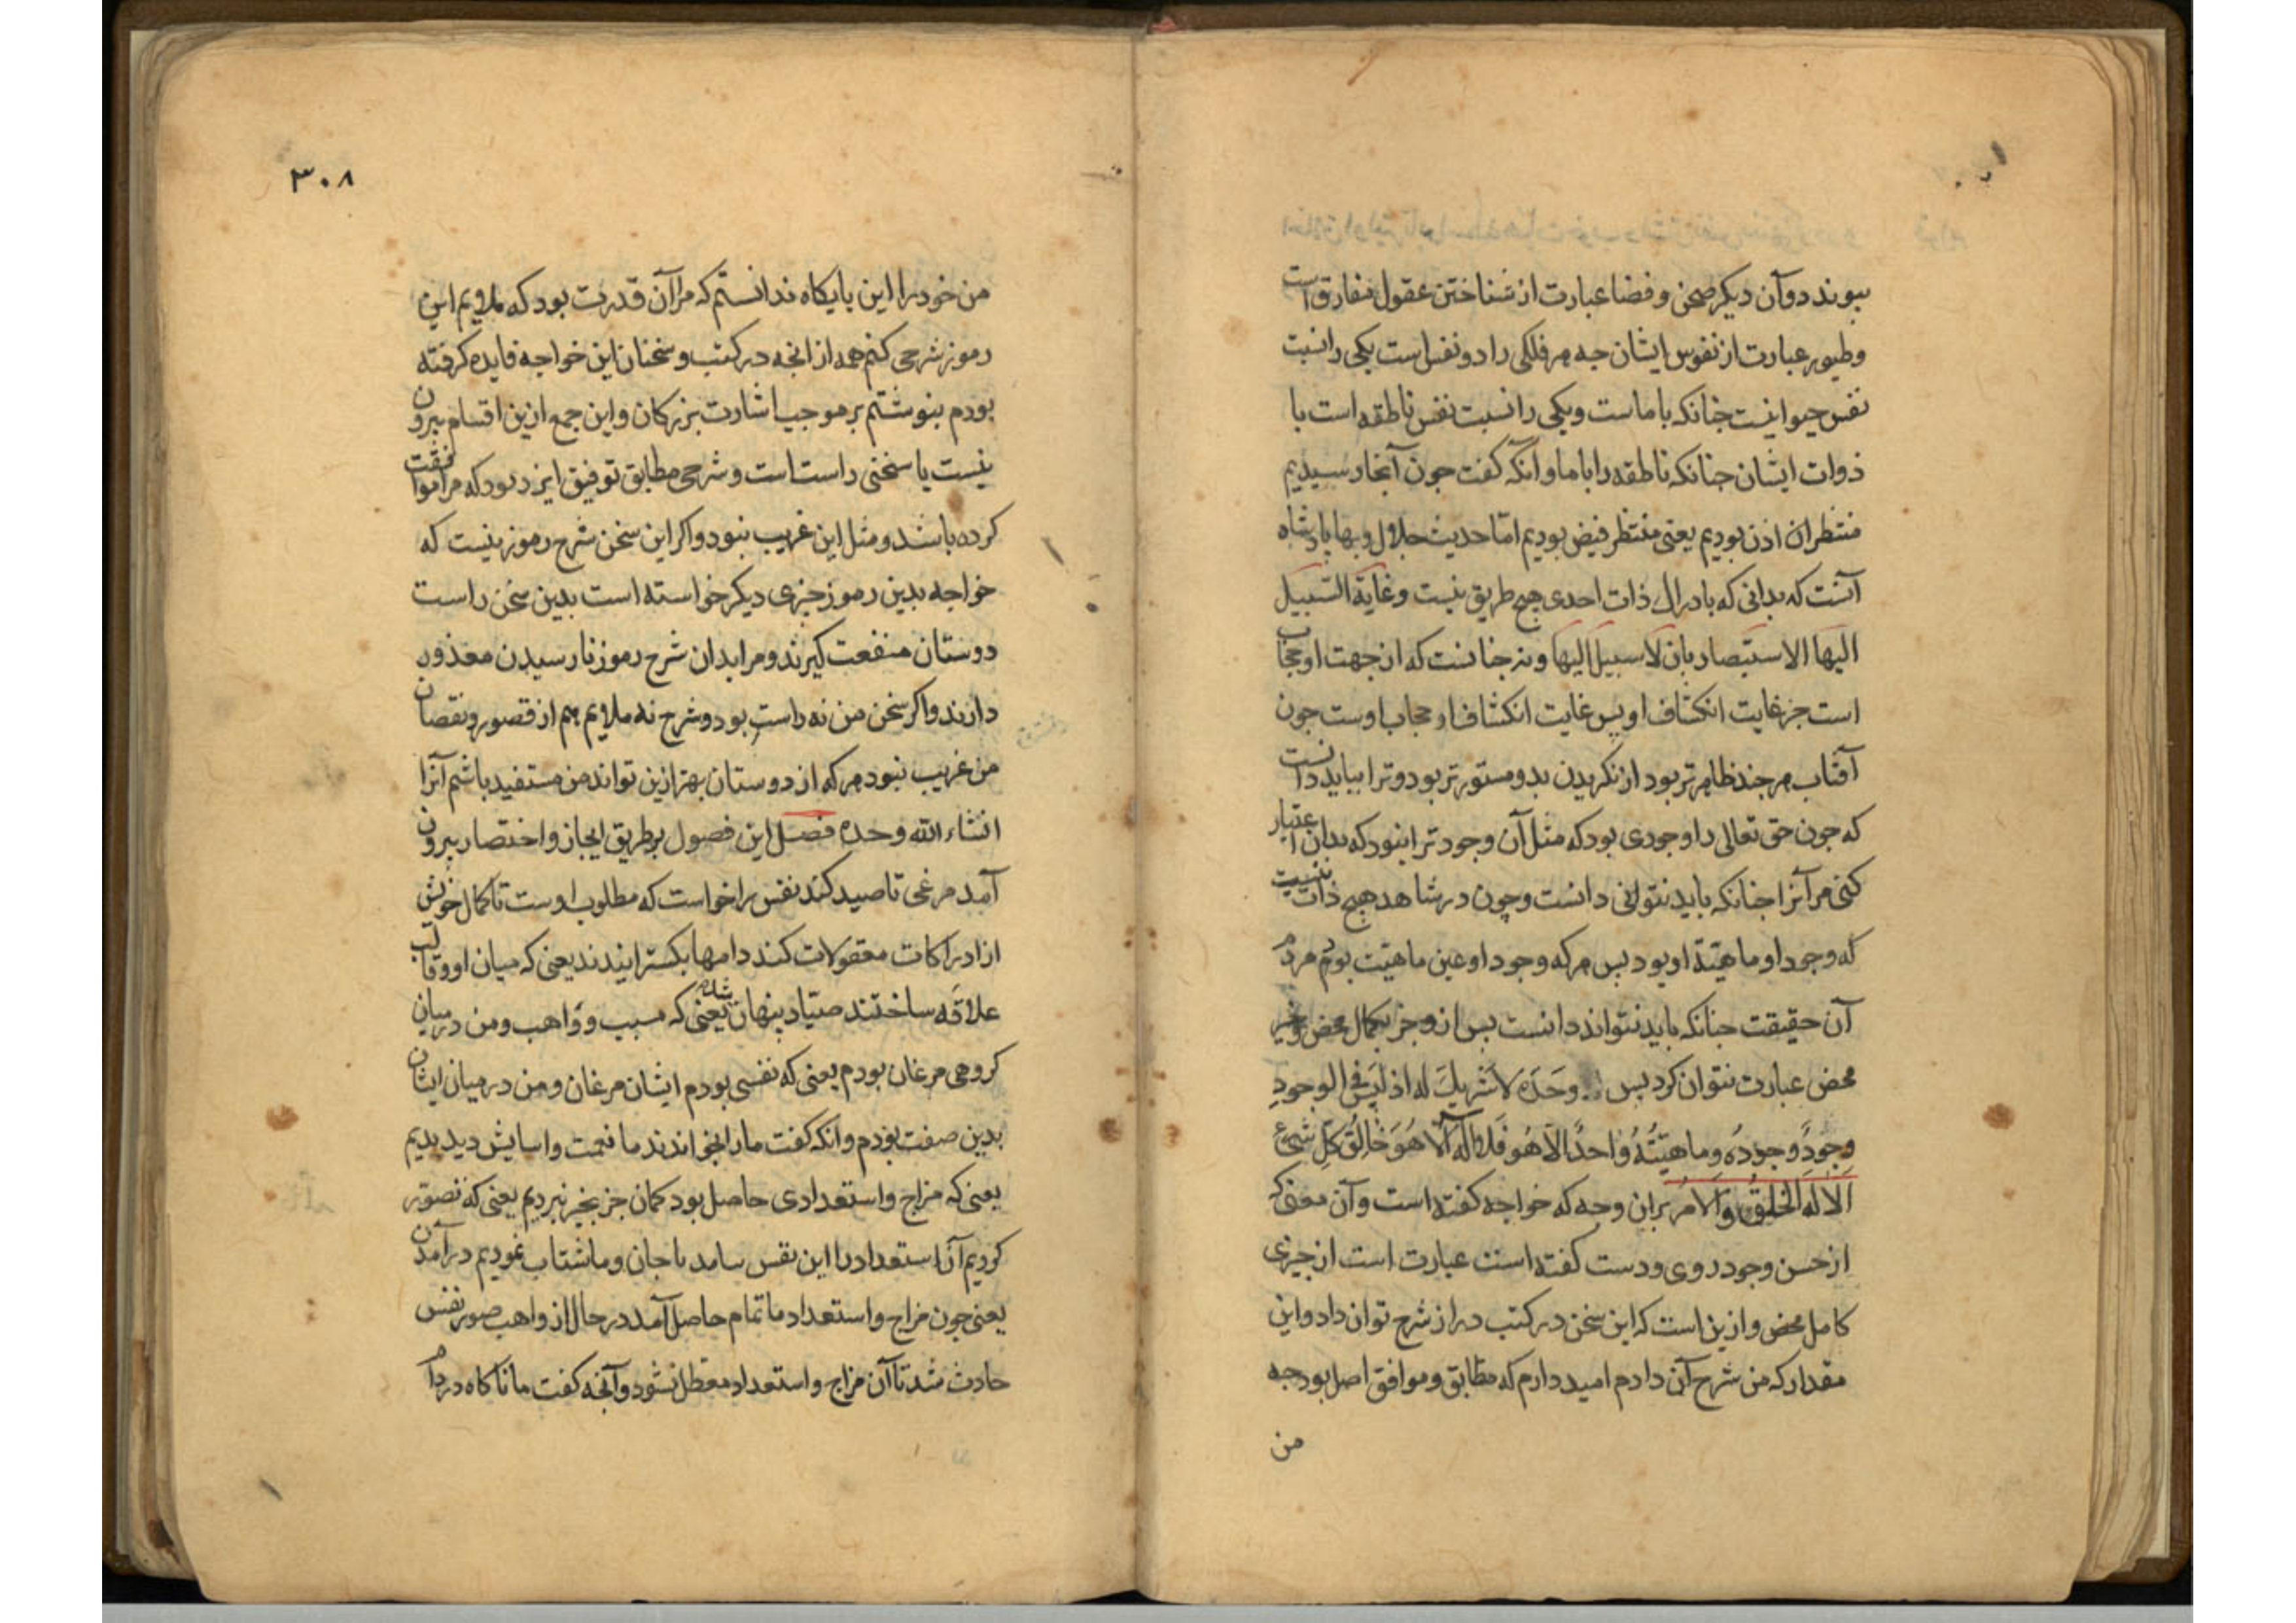 بیوند دوآن دیکر صحن و فضا عبارت از شناختن عقول مفارق است
وطیور عبارت از نفوس ایشان جه هر فلکی را دو نفس است یکی را نسبت
نفس حیوانیست جنانکه با ماست ویکی را نسبت نفس ناطقه است با
ذوات ایشان جنانکه ناطقه را با ما و آنکه کفت جون آنجا رسیدیم
منتظران اذن بودیم یعنی منتظر فیض بودیم امّا حدیث جلال و بها پادشاه
آنست که بدانی که بادراک ذات احدی هیج طریق نیست وغایة السّبیل
الیها الاستبصار بان لاسبیل الیها ونه جنانست که از جهت او حجاب
است جز غایت انکشاف او بس غایت انکشاف او حجاب اوست جون
آفتاب هر جند ظاهرتر بود از نکریدن بدو مستورتر بود وترا بباید دانست
که جون حق تعالی را وجودی بود که مثل آن وجود ترا نبود که بدان اعتبار
کنی مر آنرا جنانکه باید نتوانی دانست وچون در شاهد هیچ ذات نیست
که وجود او ماهیّة او بود بس هر که وجود او عین ماهیّت بود مردم
آن حقیقت جنانکه باید نتواند دانست بس ازو جز بکمال محض وخیر
محض عبارت نتوان کرد بس وَحَدَه لاشَریكَ له اذ لیَس فی الوجودِ
وجودً وجودُه وماهیّتُهُ واحدًا الاّ هُو فَلا اله الّا هُوَ خالِقُ کلِ شئ
اَلا لهُ الخلقُ والاَمرُ بران وجه که خواجه کفته است وآن معنی که
از حسن وجود روی ودست کفته است عبارت است از جیزی
کامل محض و ازین است که این سخن در کتب دراز شرح توان داد واین
مقدار که من شرح آن دادم امید دارم که مطابق و موافق اصل بود جه
من
۳۰۸
من خود را این بایکاه ندانستم که مرا آن قدرت بود که ملایم این
رموز شرحی کنم همه از انجه در کتب وسخنان این خواجه فایده کرفته
بودم بنوشتم بر موجب اشارت بزرکان واین جمع ازین اقسام بیرون
نیست یا سخنی راست است وشرحی مطابق توفیق ایزد بود که مرا موافقت
کرده باشد ومثل این غریب نبود واکر این سخن شرح رموز نیست که
خواجه بدین رموز جیزی دیکر خواسته است بدین سخن راست
دوستان منفعت کیرند ومرا بدان شرح رموز نارسیدن معذور
دارند واکر سخن من نه راست بود وشرح نه ملایم هم از قصور ونقصان
من غریب نبود هر که از دوستان بهتر ازین تواند من مستفید باشم آنرا
انشاء الله وحده فصل این فصول بر طریق ایجاز واختصار بیرون
آمد مرغی تا صید کند نفس را خواست که مطلوب اوست تا کمال خویش
از ادراکات معقولات کند دامها بکسترانیدند یعنی که میان او وقالب
علاقَه ساختند صیّاد پنهان شده یعنی که مسبب وواهب ومن در میان
کروهی مرغان بودم یعنی که نفسی بودم ایشان مرغان ومن در میان ایشان
بدین صفت بودم وانکه کفت مارا بخواندند ما نعمت واسایش دیدیم
یعنی که مزاج واستعدادی حاصل بود کمان جز بخیر نبردیم یعنی که تصور
کردیم آن استعداد را این نفس بیامد با جان وما شتاب نمودیم در آمدن
یعنی جون مزاج واستعداد ما تمام حاصل آمد در حال از واهب صور نفس
حادث شد تا آن مزاج واستعداد معطل نشود وآنجه کفت ما ناکاه در دام